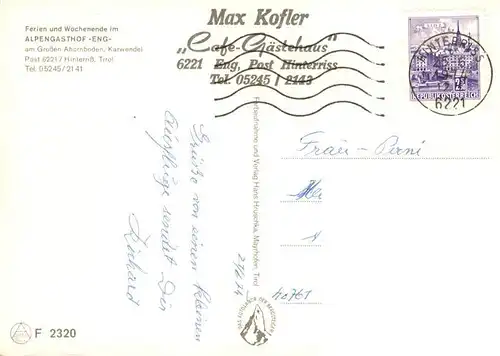 Ferien und Wochenende im
ALPENGASTHOF -ENG-
am Großen Ahornboden, Karwendel
Post 6221 / Hinterriß, Tirol
Tel. 05245 / 21 41
Max Kofler
„Cafe-Gästehaus"
6221 Eng, Post Hinterriss
Tel. 05245 / 2143
HINTERRISS
6221
REPUBLIK ÖSTERREICH
Grüße von einem kleinen
Ausflüge sendet Dir
Richard
Farbaufnahme und Verlag Hans Hruschka, Mayrhofen, Tirol
Frau
F 2320